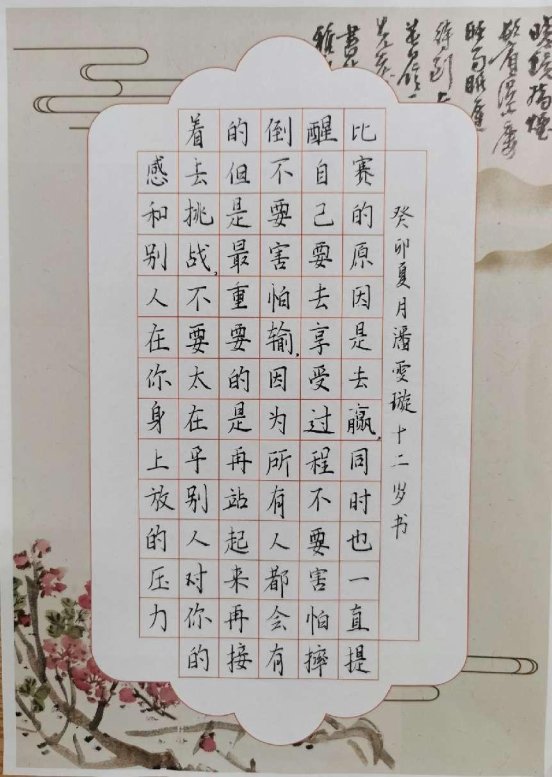 比赛的原因是去赢,同时也一直提
醒自己要去享受过程不要害怕摔
倒不要害怕输,因为所有人都会有
的但是最重要的是再站起来再接
着去挑战,不要太在乎别人对你的
感和别人在你身上放的压力
癸卯夏月潘雯璇十二岁书